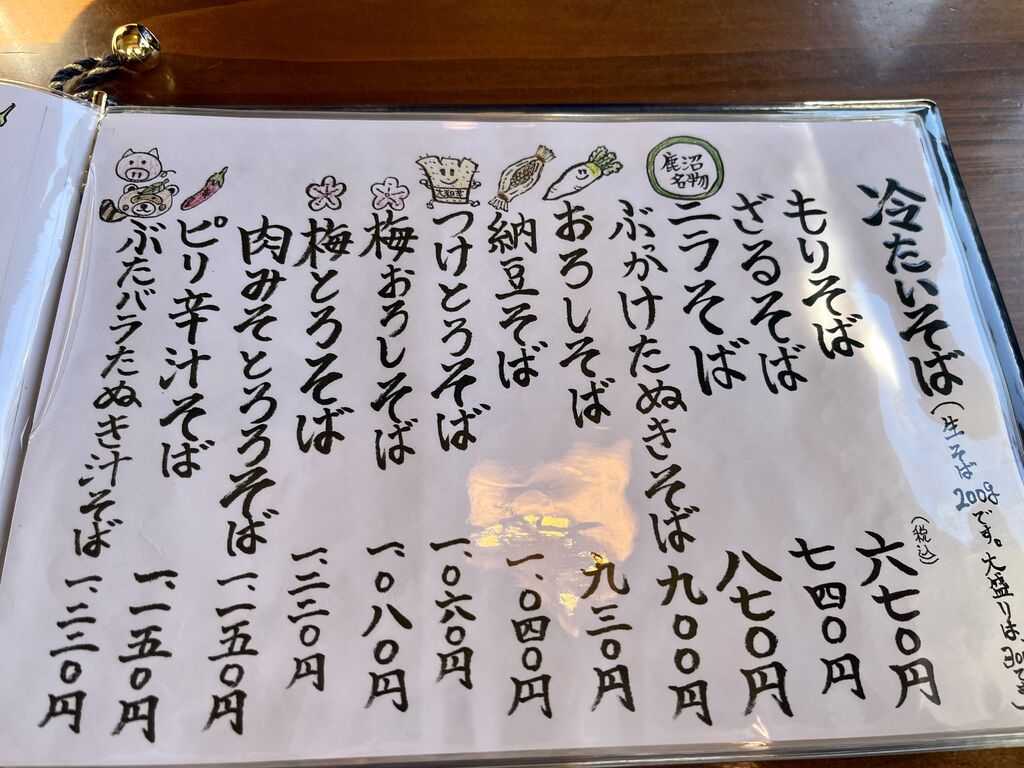 冷たいそば(生そば200gです。大盛りは300gです)
(税込)
もりそば 六七〇円
ざるそば 七四〇円
鹿沼名物
ニラそば 八七〇円
ぶっかけたぬきそば 九〇〇円
おろしそば 九三〇円
納豆そば 一、〇四〇円
大和芋
つけとろそば 一、〇六〇円
梅おろしそば 一、〇八〇円
梅とろそば 一、二二〇円
肉みそとろろそば 一、一五〇円
ピリ辛汁そば 一、一五〇円
ぶたバラたぬき汁そば 一、二二〇円